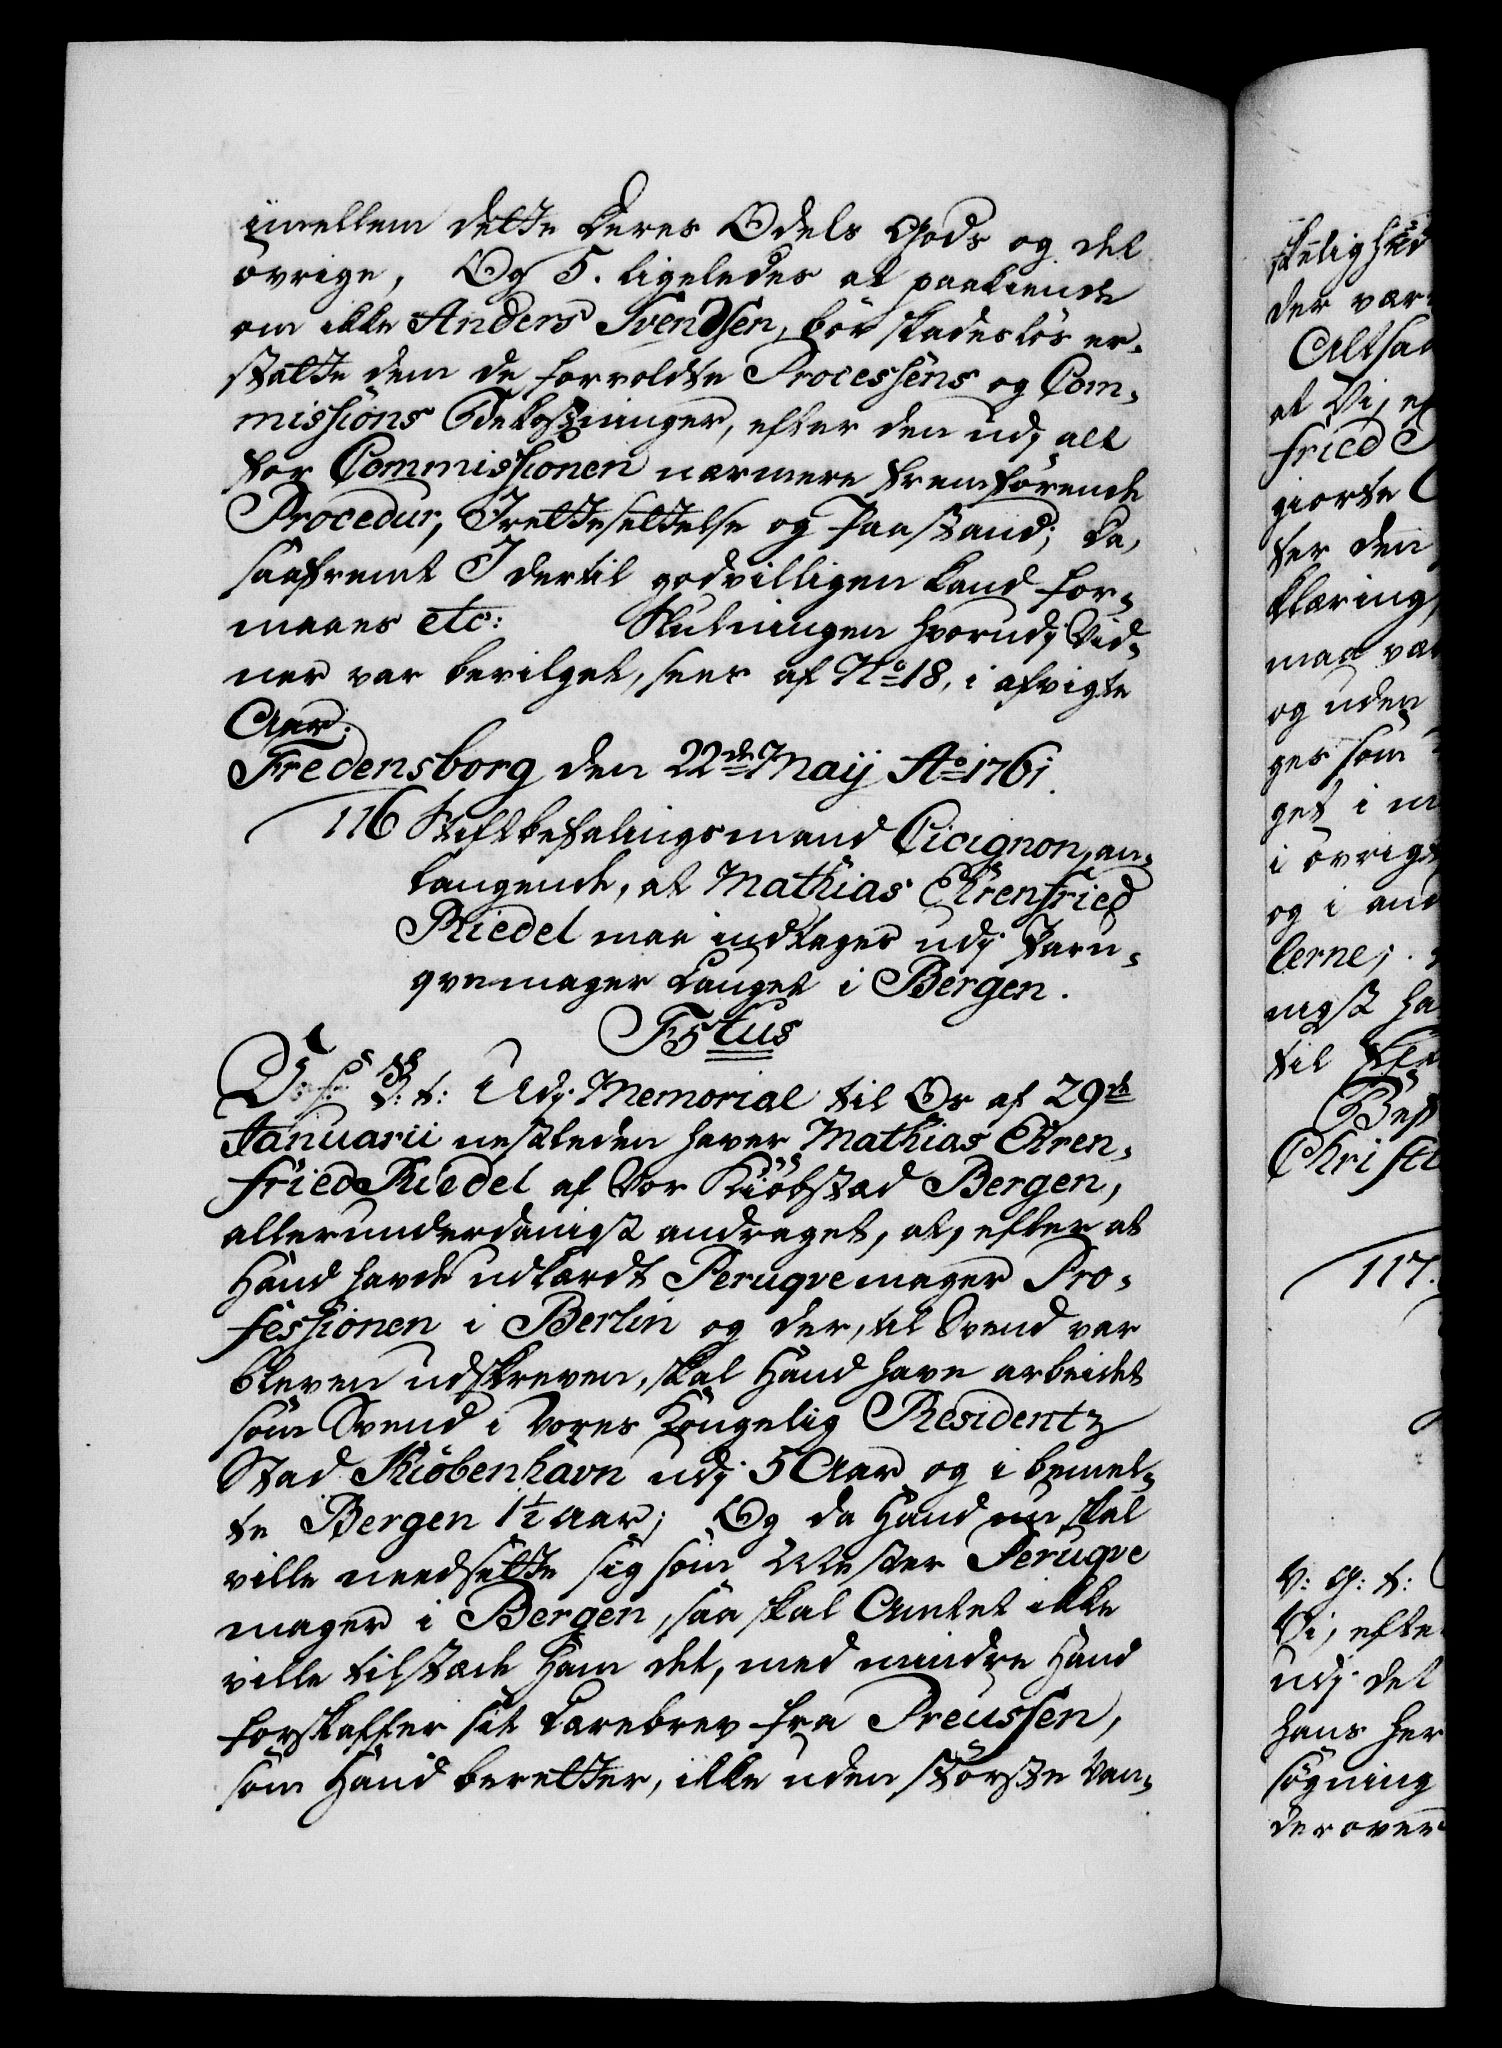 imellem dette deres Odels Gods og det
övrige, Og 5. ligeledes at paakiende
om ikke Anders Svendsen, bör skadeslös er-
statte dem de forvoldte Processens og Com-
missions Bekostninger, efter den udj alt
for Commissionen nærmere fremförende
Procedur, Irettesettelse og Paastand; da,
saafremt I dertil godvilligen kand for-
maaes etc: Slutningen hvorudj Vid-
ner var bevilget, sees af No 18, i afvigte
Aar.
Fredensborg den 22de Maij Ao 1761.
116 Stiftbefalingsmand Cicignon, an-
langende, at Mathias Ehrenfried
Riedel maa indtages udj Paru-
qvemager Lauget i Bergen.
F5tus
V: G: t: Udj Memorial til Os af 29de
Januarii nestleden haver Mathias Ehren-
fried Riedel af Vor Kiöbstad Bergen,
allerunderdanigst andraget, at, efter at
Hand havde udlærdt Peruqvemager Pro-
fessionen i Berlin og der, til Svend var
bleven udskreven, skal Hand have arbeidet
som Svend i Vores Kongelig Residentz
Stad Kiöbenhavn udj 5 Aar og i bemel-
te Bergen 1½ Aar; Og da Hand nu skal
ville needsette sig som Mester Peruqve
mager i Bergen, saa skal Amtet ikke
ville tilstæde Ham det, med mindre Hand
forskaffer sit Lærebrev fra Preussen,
som Hand beretter, ikke uden störste Van-
der vær
Altsaa
at Vi, ef
fried
giorte
ter den
klæring,
maa væ
og uden
ges som
get i
i övrigt
og i and
lerne;
nigst ha
til
Bef
Christi
117.
V: G: t:
Vi, efte
udj det
hans her
søgning
derover